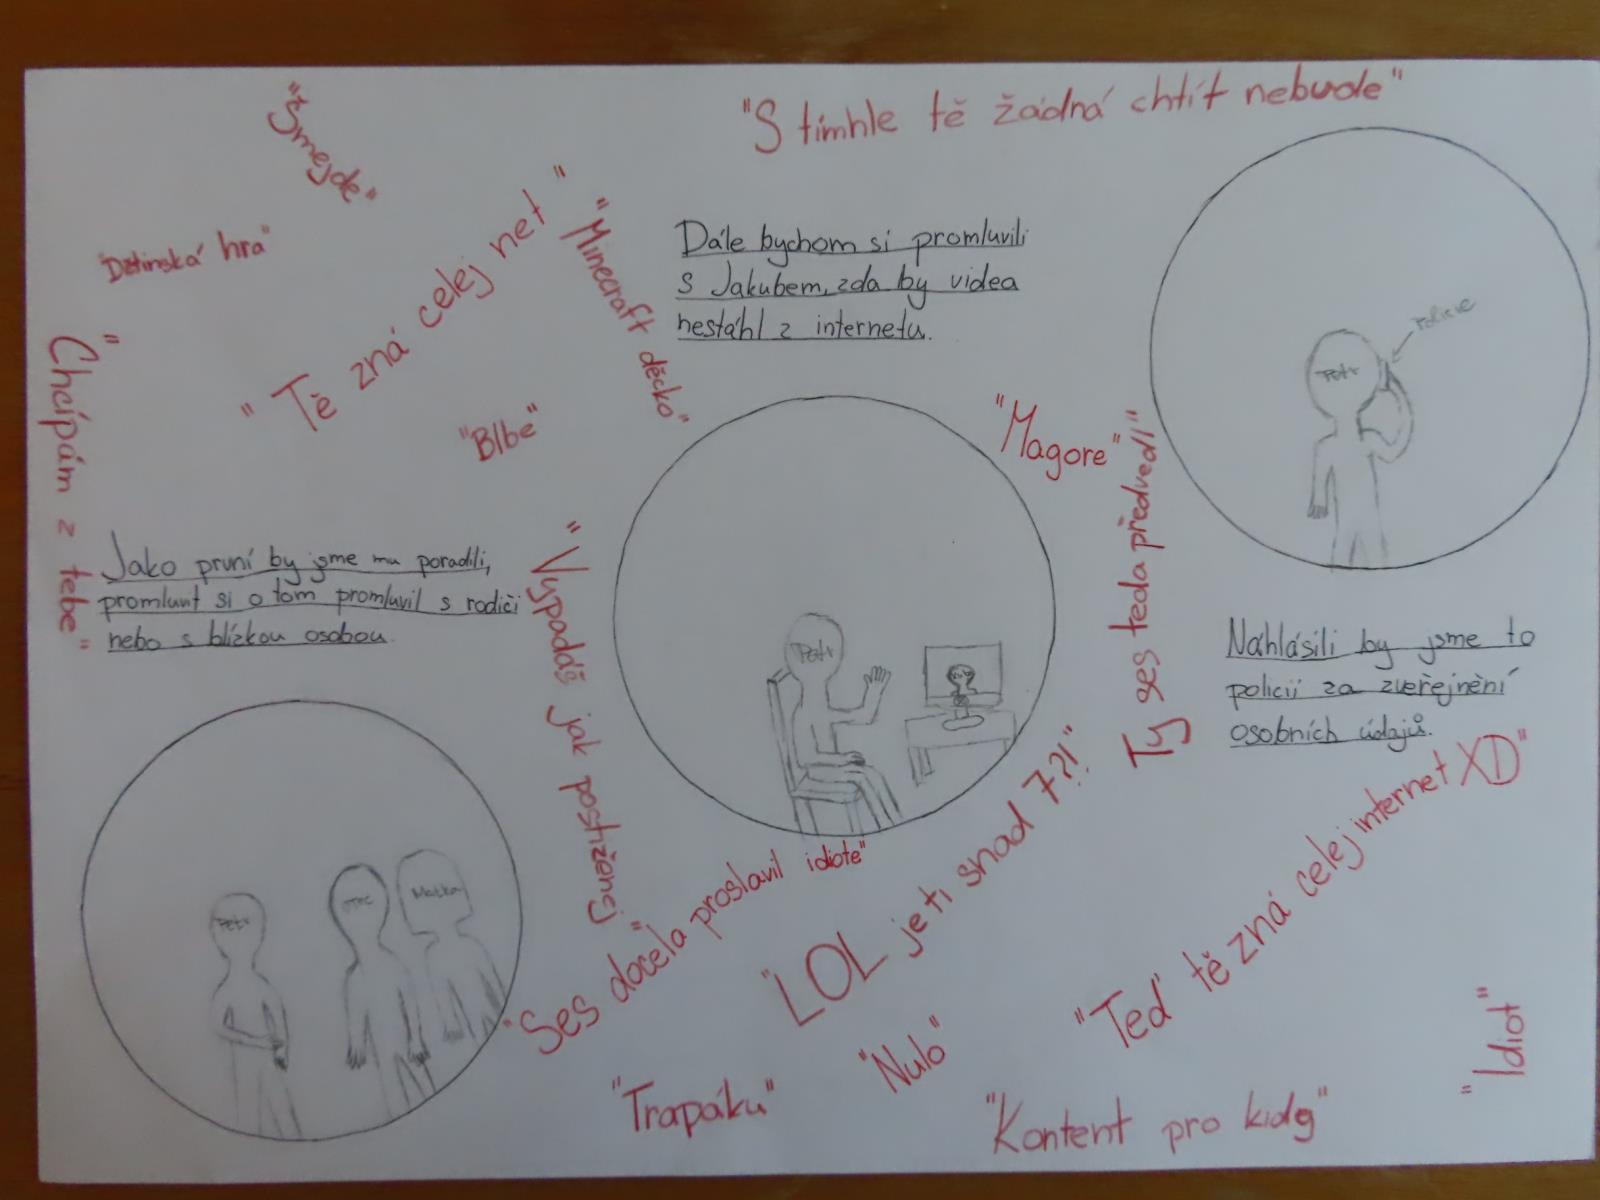 "Šmejde"
"S tímhle tě žádná chtít nebude"
"Dětinská hra"
"Tě zná celej net"
"Minecraft děcko"
Dále bychom si promluvili
s Jakubem, zda by videa
nestáhl z internetu.
Policie
Petr
"Chcípám z tebe"
"Blbe"
"Magore"
"Ty ses teda předvedl"
Jako první by jsme mu poradili,
promluvit si o tom promluvil s rodiči
nebo s blízkou osobou.
"Vypadáš jak postiženej"
Petr
Nahlásili by jsme to
policii za zveřejnění
osobních údajů.
Petr
Otec
Matka
"Ses docela proslavil idiote"
"LOL je ti snad 7?!"
"Teď tě zná celej internet XD"
"Trapáku"
"Nulo"
"Kontent pro kids"
"Idiot"